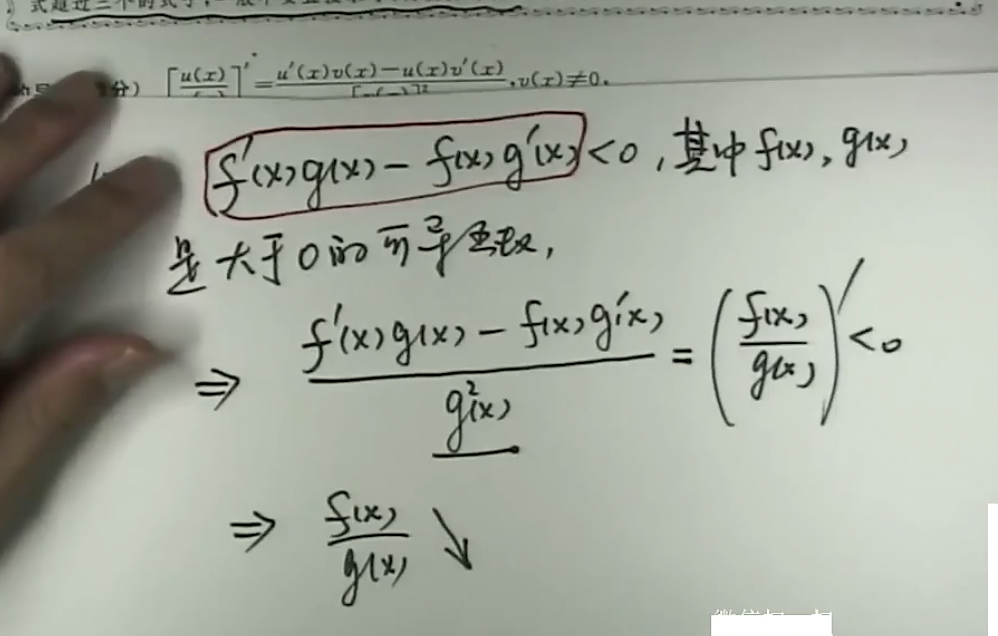 式超过三个的式子,一般不
分) [u(x)/]' = u'(x)v(x)−u(x)v'(x)/[ ]², v(x)≠0.
f'(x)g(x) − f(x)g'(x) < 0, 其中 f(x), g(x)
是大于0的可导函数,
⇒ f'(x)g(x) − f(x)g'(x) / g²(x) = (f(x)/g(x))' < 0
⇒ f(x)/g(x) ↘